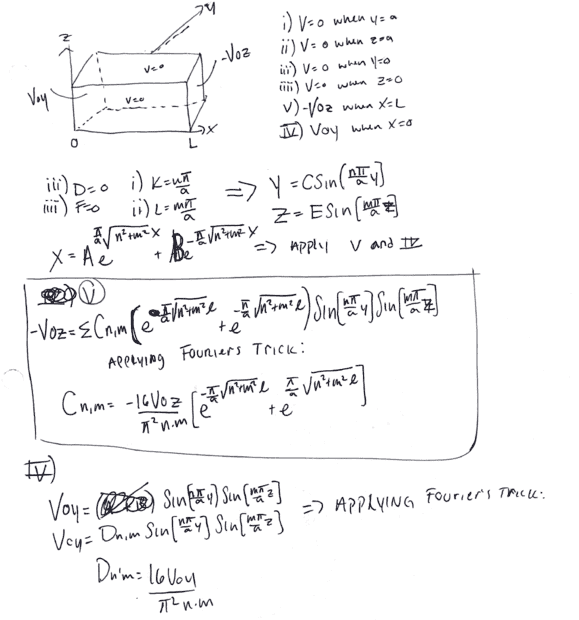 Y
Z
V=0
-Voz
Voy
V=0
0
L
X
i) V=0 when y=a
ii) V=0 when z=a
iii) V=0 when y=0
iiii) V=0 when z=0
V) -Voz when x=L
IV) Voy when x=0
iii) D=0 i) K=nπ/a => Y = C Sin(nπ/a y]
iiii) F=0 ii) L=mπ/a Z = E Sin[mπ/a z]
X = Ae^(π/a √n²+m² X) + Be^(-π/a √n²+m² X) => Apply V and IV
V
-Voz = Σ Cn,m (e^(π/a √n²+m² l) + e^(-π/a √n²+m² l)) Sin[nπ/a y] Sin[mπ/a z]
Applying Fouriers Trick:
Cn,m = -16Voz/π² n·m [e^(-π/a √n²+m² l) + e^(π/a √n²+m² l)]
IV)
Voy = Sin[nπ/a y) Sin[mπ/a z] => APPLYING Fourier's Trick:
Voy = Dn,m Sin[nπ/a y] Sin[mπ/a z]
Dn'm = 16Voy/π² n·m